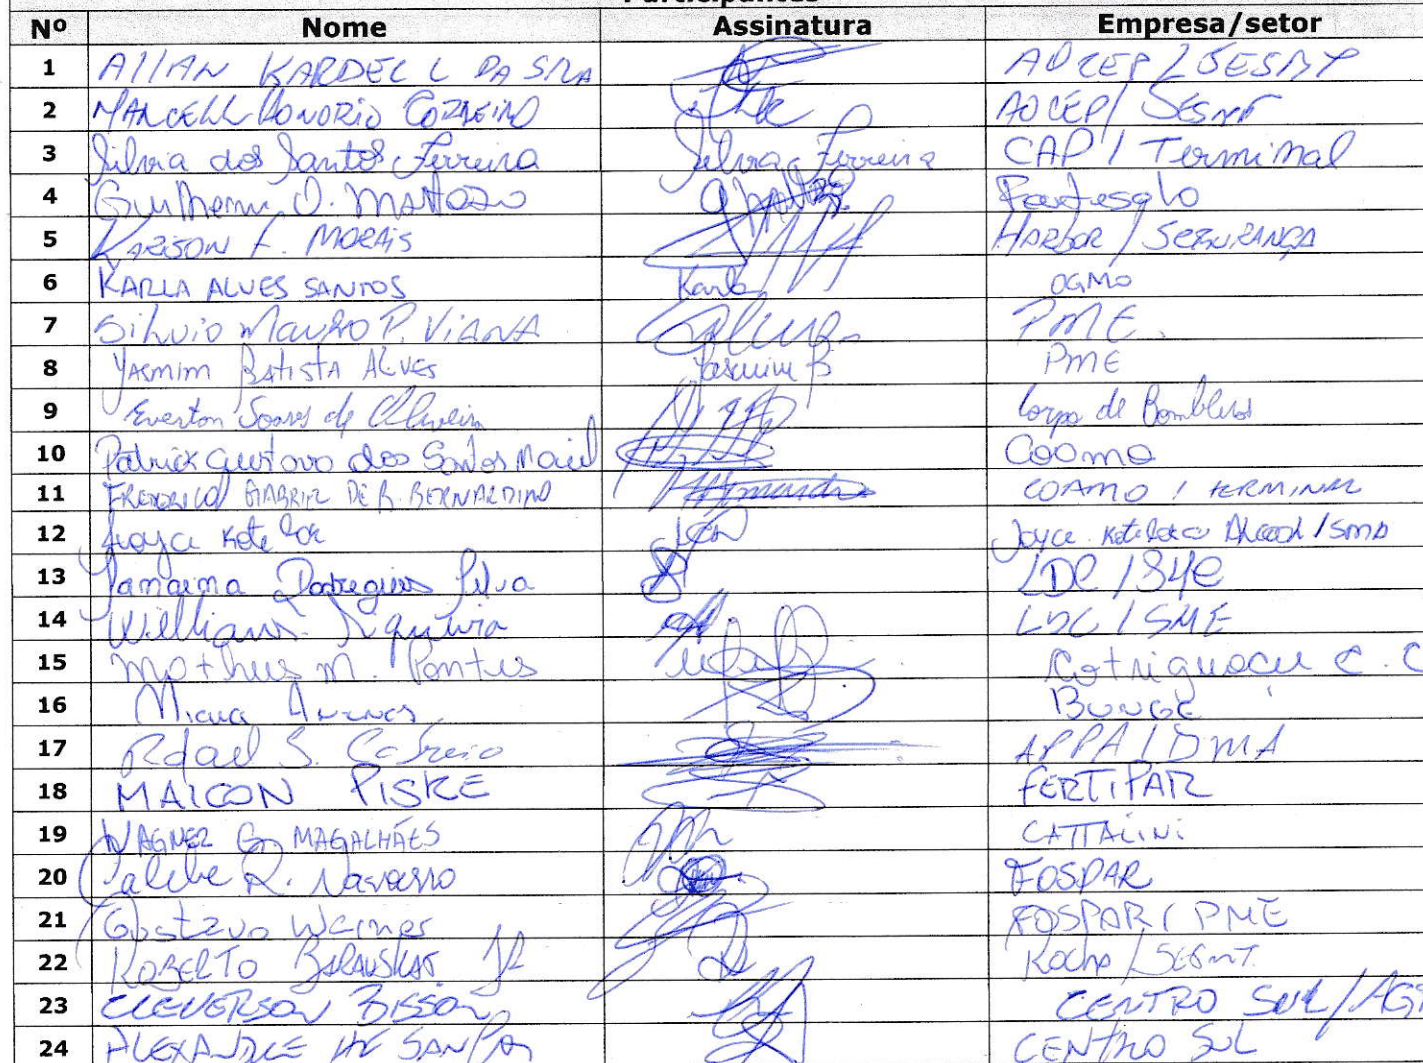 Participantes
Nº Nome Assinatura Empresa/setor
1 Allan KARDEC L DA SILVA
2 MARCELL HONORIO CORDEIRO SESMT
3 Silvia dos Santos Ferreira Silvia Ferreira CAP / Terminal
4 Guilherme O. Mattozo
5 KARISON F. MORAIS HARBOR / SEGURANÇA
6 KARLA ALVES SANTOS Karla OGMO
7 Silvio Mauro P. VIANA PME
8 YASMIM BATISTA ALVES Yasmim B PME
9 Everton Soares de Oliveira Corpo de Bombeiros
10 Patrick Gustavo dos Santos Maciel Coamo
11 FREDERICO GABRIEL DE B. BERNARDINO COAMO / TERMINAL
12 Joyce Kotelok Joyce
13 Janaina Rodrigues Silva LDC
14 Willians Siqueira LDC / SME
15 Matheus M. Pontes Cotriguaçu C. C
16 BUNGE
17 Rafael S. APPA / DMA
18 MAICON PISKE FERTIPAR
19 WAGNER G. MAGALHÃES CATTALINI
20 Calebe R. Navarro FOSPAR
21 Gustavo Werner FOSPAR / PME
22 ROBERTO BARAUSKAS JR Rocha / SESMT.
23 CLEVERSON BISSON CENTRO SUL / AGS
24 ALEXANDRE DE CENTRO SUL